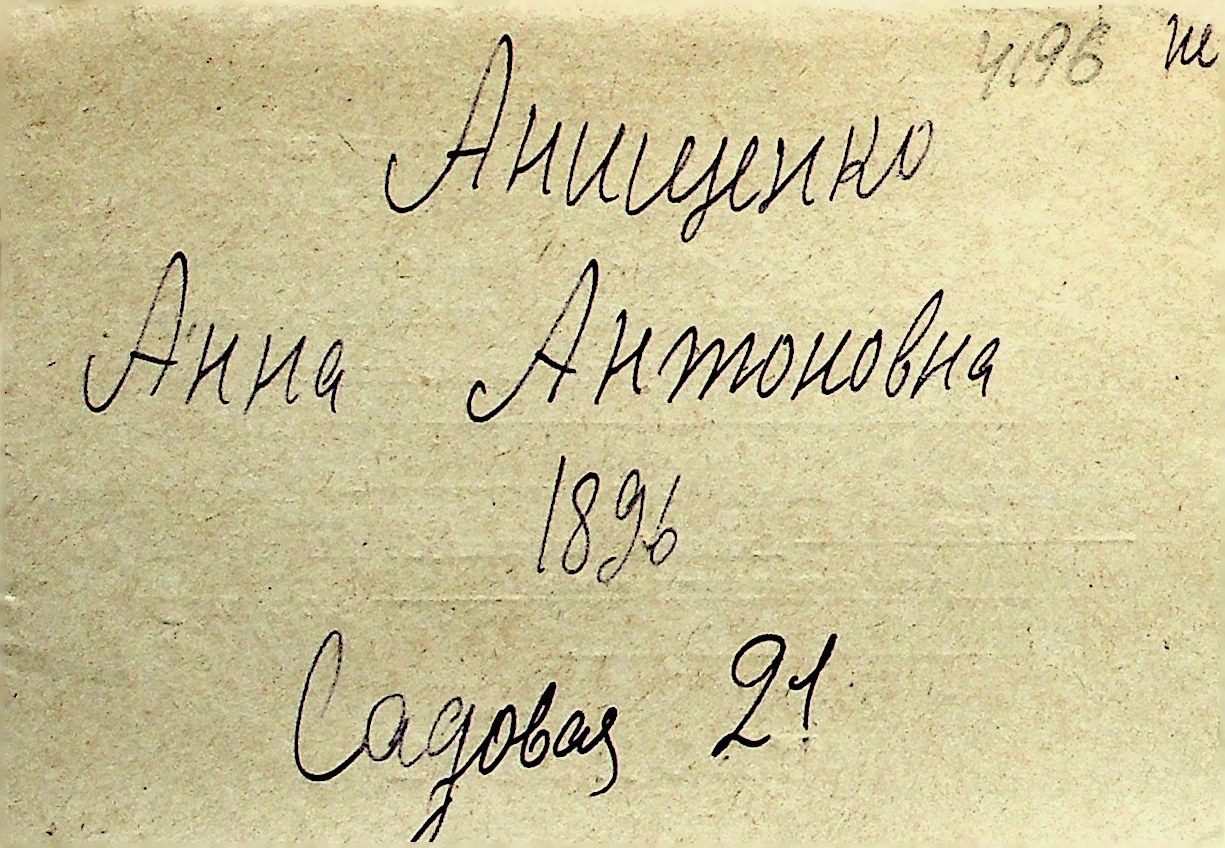 4196
Анищенко
Анна Антоновна
1896
Садовая 21